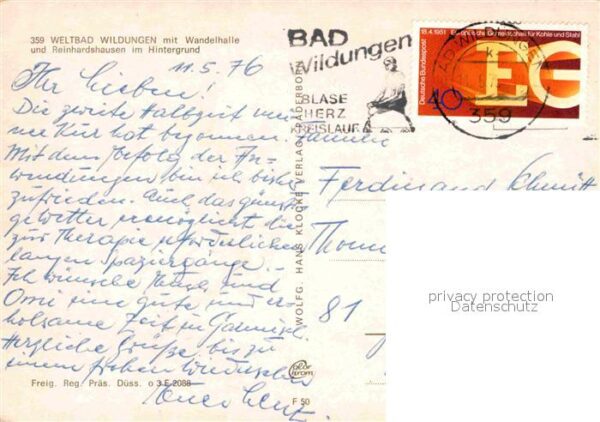 359 WELTBAD WILDUNGEN mit Wandelhalle
und Reinhardshausen im Hintergrund
11.5.76
Ihr Lieben!
Die zweite Halbzeit mei-
ner Kur hat begonnen.
Mit dem Erfolg der An-
wendungen bin ich bisher
zufrieden. Auch das günsti-
ge Wetter ermöglicht die
zur Therapie erforderlichen
langen Spaziergänge.
Ich wünsche und
Omi eine gute und er-
holsame Zeit in
Herzliche Grüße bis zu
einem frohen Wiedersehen
Euer
Freig. Reg. Präs. Düss. o 3 E 2088
WOLFG. HANS KLOCKE VERLAG PADERBORN
F 50
BAD
Wildungen
BLASE
HERZ
KREISLAUF
359
18.4.1951 Europäische Gemeinschaft für Kohle und Stahl
Deutsche Bundespost
40
EG
Familie
Ferdinand Schmitt
81
privacy protection
Datenschutz